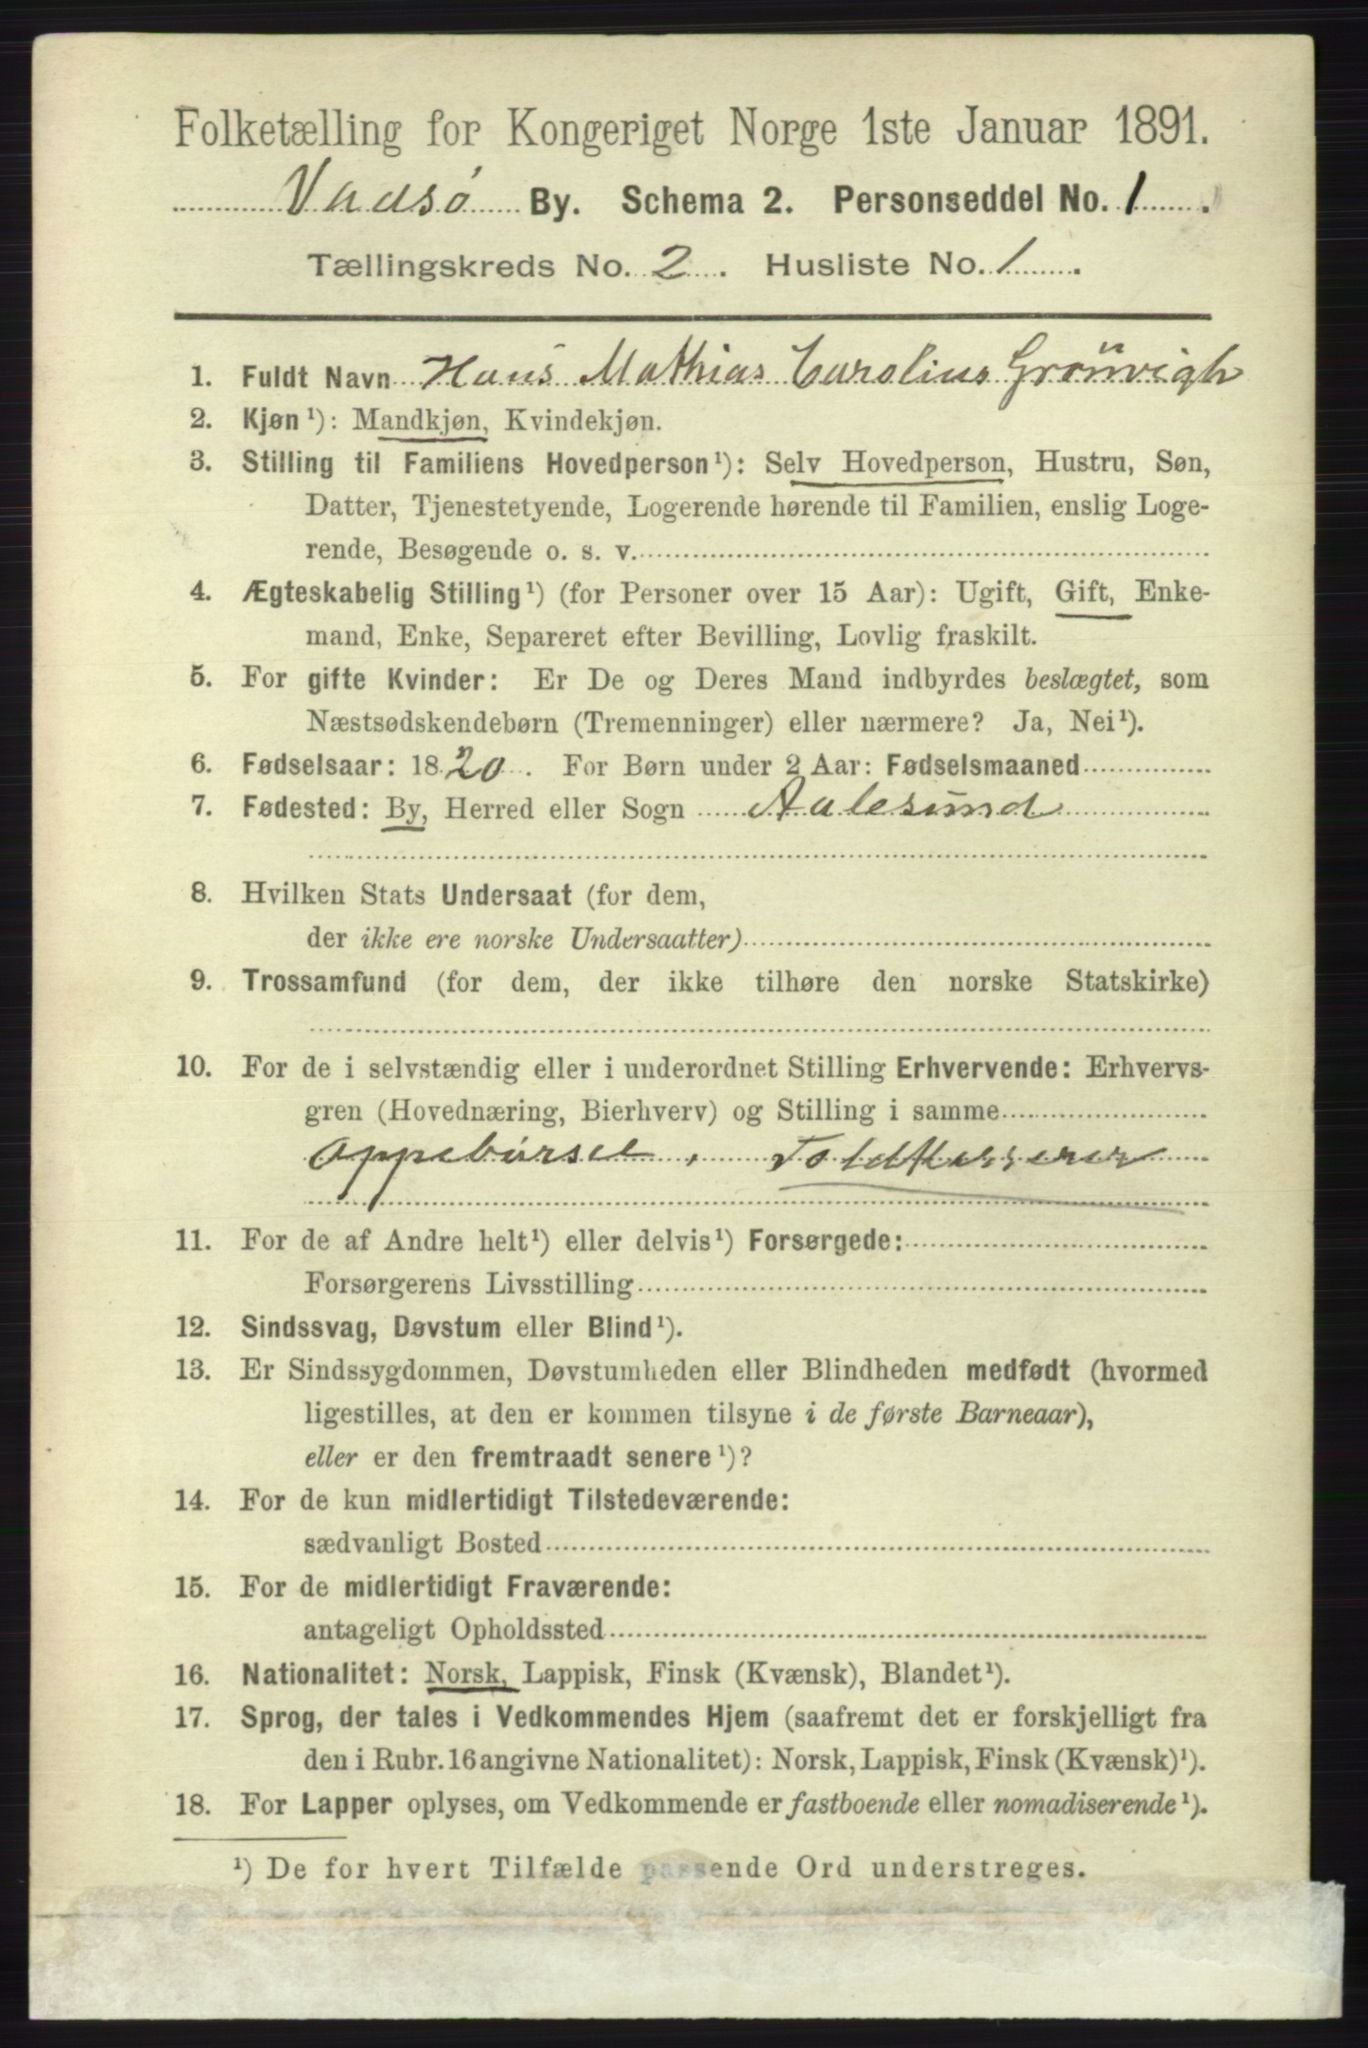 Folketælling for Kongeriget Norge 1ste Januar 1891.
Vadsø By. Schema 2. Personseddel No. 1.
Tællingskreds No. 2. Husliste No. 1.
1. Fuldt Navn Hans Mathias Carolius Grönvigh
2. Kjøn¹): Mandkjøn, Kvindekjøn.
3. Stilling til Familiens Hovedperson¹): Selv Hovedperson, Hustru, Søn,
Datter, Tjenestetyende, Logerende hørende til Familien, enslig Loge-
rende, Besøgende o. s. v.
4. Ægteskabelig Stilling¹) (for Personer over 15 Aar): Ugift, Gift, Enke-
mand, Enke, Separeret efter Bevilling, Lovlig fraskilt.
5. For gifte Kvinder: Er De og Deres Mand indbyrdes beslægtet, som
Næstsødskendebørn (Tremenninger) eller nærmere? Ja, Nei¹).
6. Fødselsaar: 1820. For Børn under 2 Aar: Fødselsmaaned
7. Fødested: By, Herred eller Sogn Aalesund
8. Hvilken Stats Undersaat (for dem,
der ikke ere norske Undersaatter)
9. Trossamfund (for dem, der ikke tilhøre den norske Statskirke)
10. For de i selvstændig eller i underordnet Stilling Erhvervende: Erhvervs-
gren (Hovednæring, Bierhverv) og Stilling i samme
Oppebørsel, Toldkasserer
11. For de af Andre helt¹) eller delvis¹) Forsørgede:
Forsørgerens Livsstilling
12. Sindssvag, Døvstum eller Blind¹).
13. Er Sindssygdommen, Døvstumheden eller Blindheden medfødt (hvormed
ligestilles, at den er kommen tilsyne i de første Barneaar),
eller er den fremtraadt senere¹)?
14. For de kun midlertidigt Tilstedeværende:
sædvanligt Bosted
15. For de midlertidigt Fraværende:
antageligt Opholdssted
16. Nationalitet: Norsk, Lappisk, Finsk (Kvænsk), Blandet¹).
17. Sprog, der tales i Vedkommendes Hjem (saafremt det er forskjelligt fra
den i Rubr. 16 angivne Nationalitet): Norsk, Lappisk, Finsk (Kvænsk)¹).
18. For Lapper oplyses, om Vedkommende er fastboende eller nomadiserende¹).
¹) De for hvert Tilfælde passende Ord understreges.